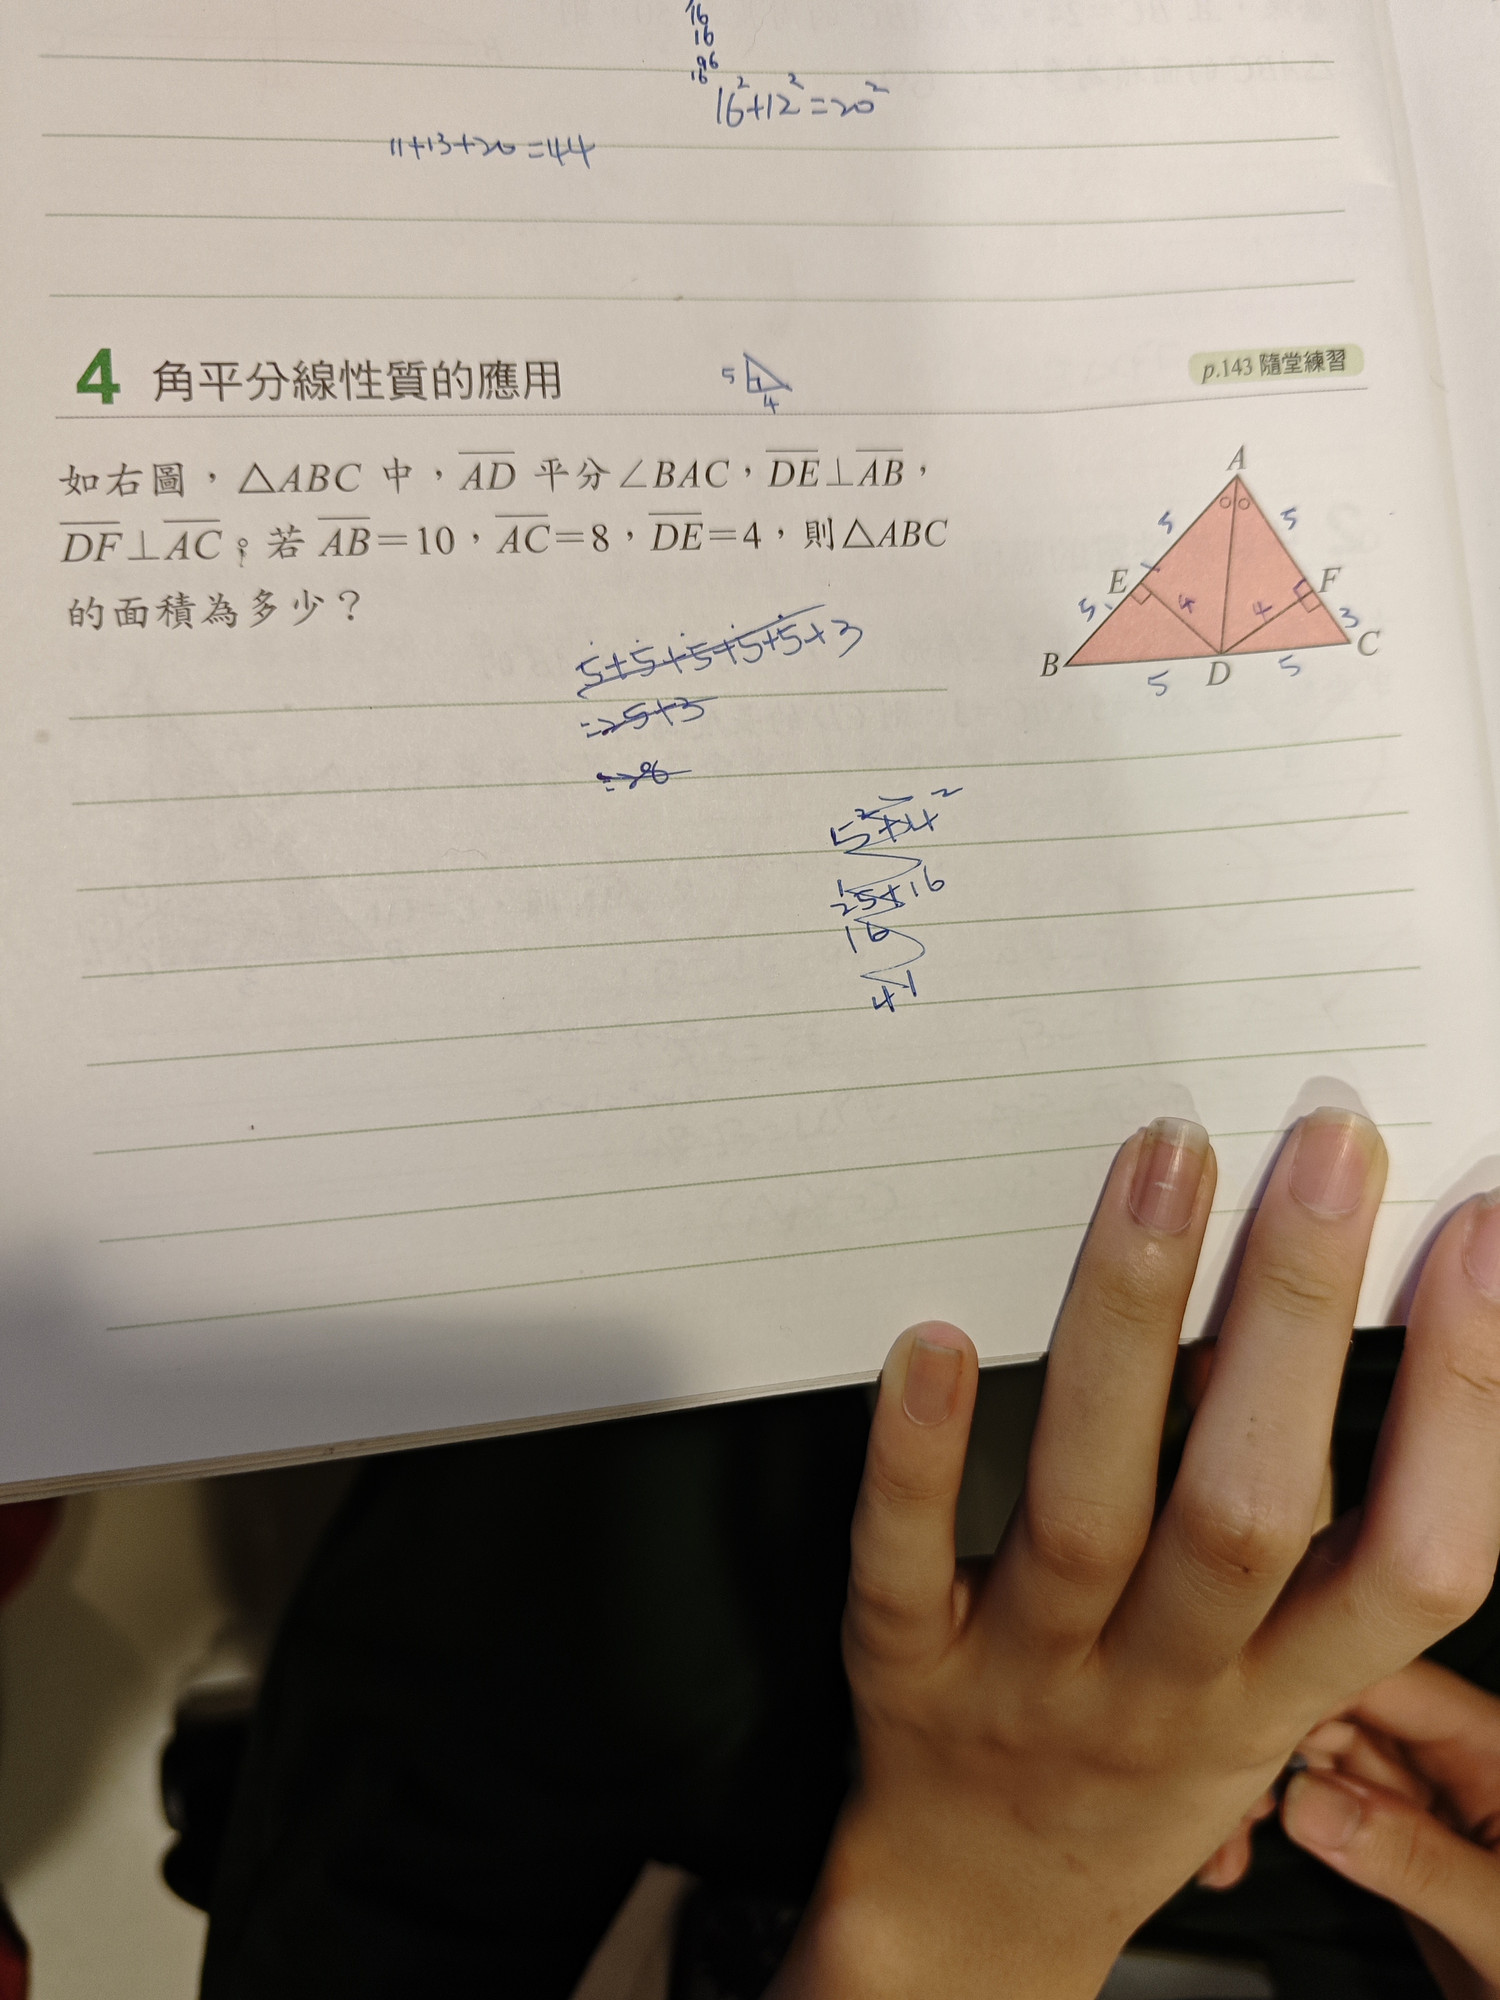 16
16
96
16
16²+12²=20²
11+13+20=44
4 角平分線性質的應用
5
4
p.143 隨堂練習
如右圖，△ABC 中，AD 平分∠BAC，DE⊥AB，
DF⊥AC。若 AB=10，AC=8，DE=4，則△ABC
的面積為多少？
A
5 5
E F
5 4 4 3
B D C
5 5
5+5+5+5+5+3
=25+3
=28
5²+4²
25+16
16
41